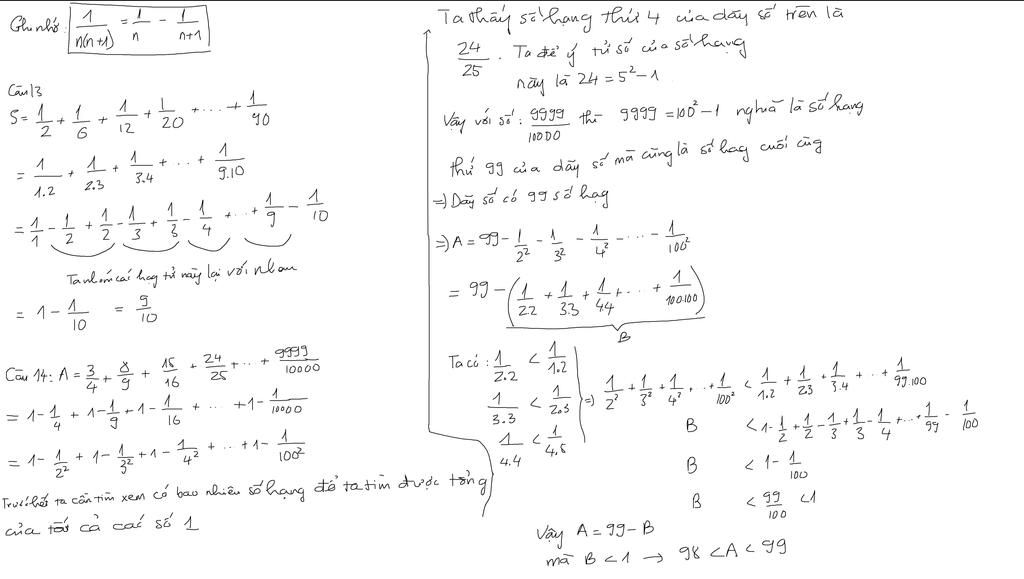 Ghi nhớ: 1/n(n+1) = 1/n - 1/n+1
Câu 13
S = 1/2 + 1/6 + 1/12 + 1/20 + ... + 1/90
= 1/1.2 + 1/2.3 + 1/3.4 + ... + 1/9.10
= 1/1 - 1/2 + 1/2 - 1/3 + 1/3 - 1/4 + ... + 1/9 - 1/10
Ta nhóm các hạg tử này lại với nhau
= 1 - 1/10 = 9/10
Câu 14: A = 3/4 + 8/9 + 15/16 + 24/25 + ... + 9999/10000
= 1 - 1/4 + 1 - 1/9 + 1 - 1/16 + ... + 1 - 1/10000
= 1 - 1/2² + 1 - 1/3² + 1 - 1/4² + ... + 1 - 1/100²
Trước hết ta cần tìm xem có bao nhiêu số hạng để ta tìm được tổng
của tất cả các số 1
Ta thấy số hạng thứ 4 của dãy số trên là
24/25. Ta để ý tử số của số hạng
này là 24 = 5² - 1
Vậy với số: 9999/10000 thì 9999 = 100² - 1 nghĩa là số hạng
thứ 99 của dãy số mà cũng là số hag cuối cùg
=> Dãy số có 99 số hạg
=> A = 99 - 1/2² - 1/3² - 1/4² - ... - 1/100²
= 99 - (1/2.2 + 1/3.3 + 1/4.4 + ... + 1/100.100)
B
Ta có: 1/2.2 < 1/1.2
1/3.3 < 1/2.3
1/4.4 < 1/4.5
=> 1/2² + 1/3² + 1/4² + ... + 1/100² < 1/1.2 + 1/2.3 + 1/3.4 + ... + 1/99.100
B < 1 - 1/2 + 1/2 - 1/3 + 1/3 - 1/4 + ... + 1/99 - 1/100
B < 1 - 1/100
B < 99/100 < 1
Vậy A = 99 - B
mà B < 1 → 98 < A < 99